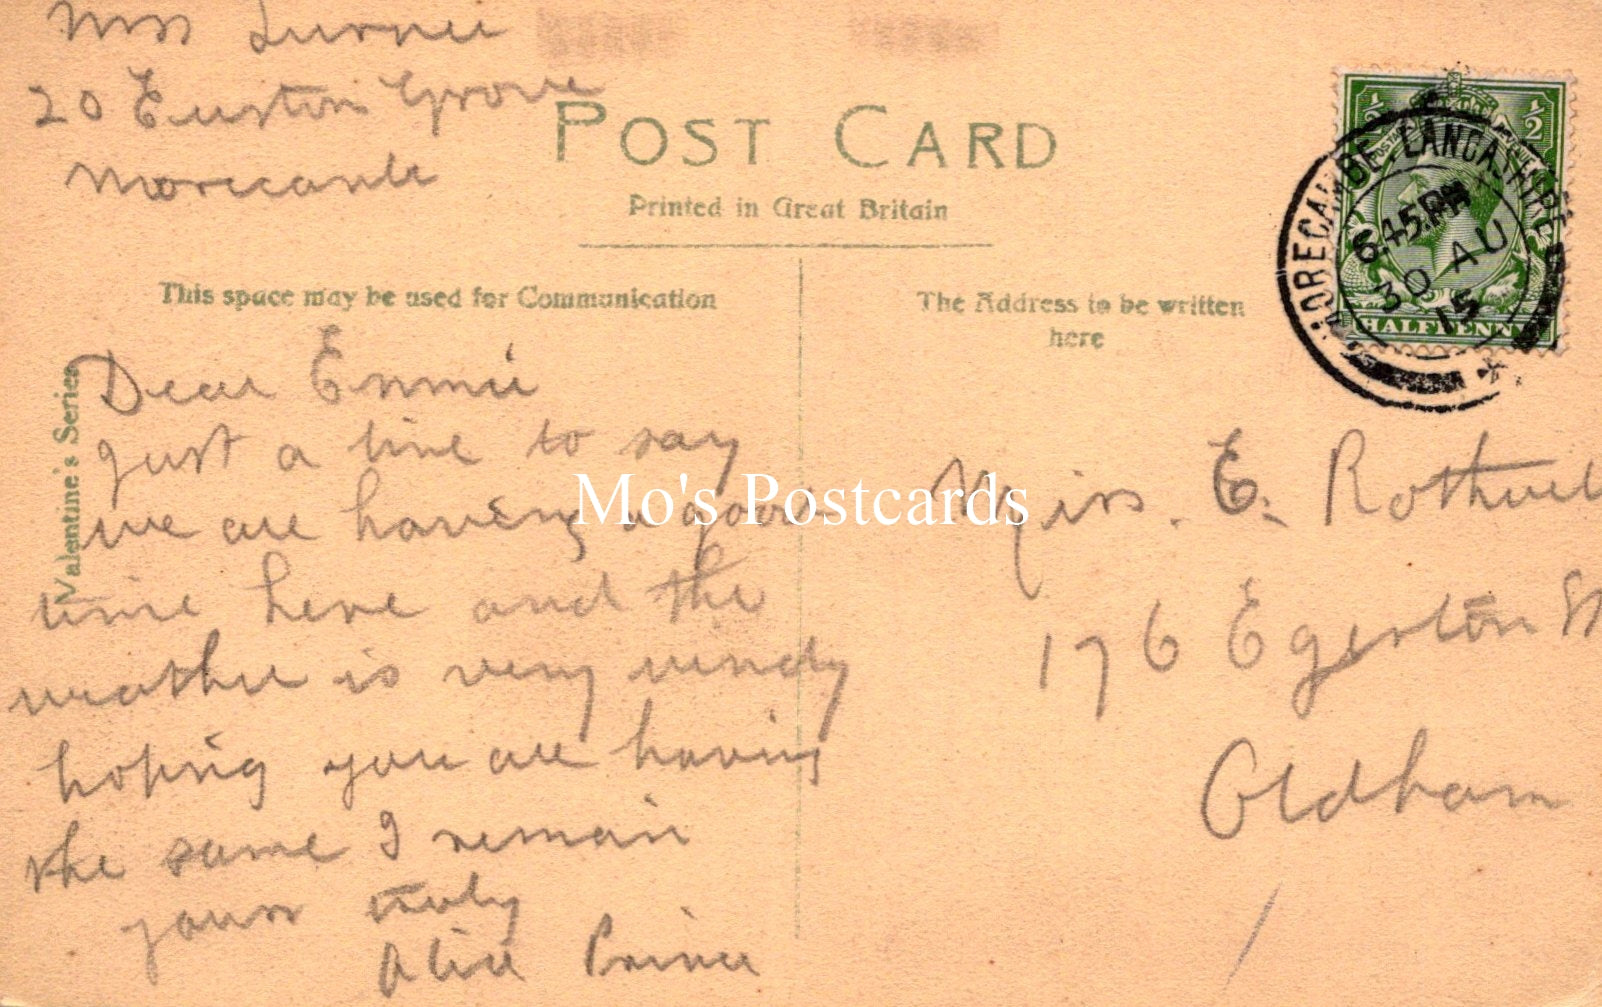 Mrs Turner
20 Euston Grove
Morecambe
POST CARD
Printed in Great Britain
This space may be used for Communication
The Address to be written
here
Valentine's Series
½ ½
HALFPENNY
MORECAMBE. LANCASHIRE
6.45 PM
30 AU
15
Dear Emmie
just a line to say
we are having a good
time here and the
weather is very windy
hoping you are having
the same I remain
yours truly
Alice Prince
Miss. E. Rothwell
176 Egerton St
Oldham
Mo's Postcards